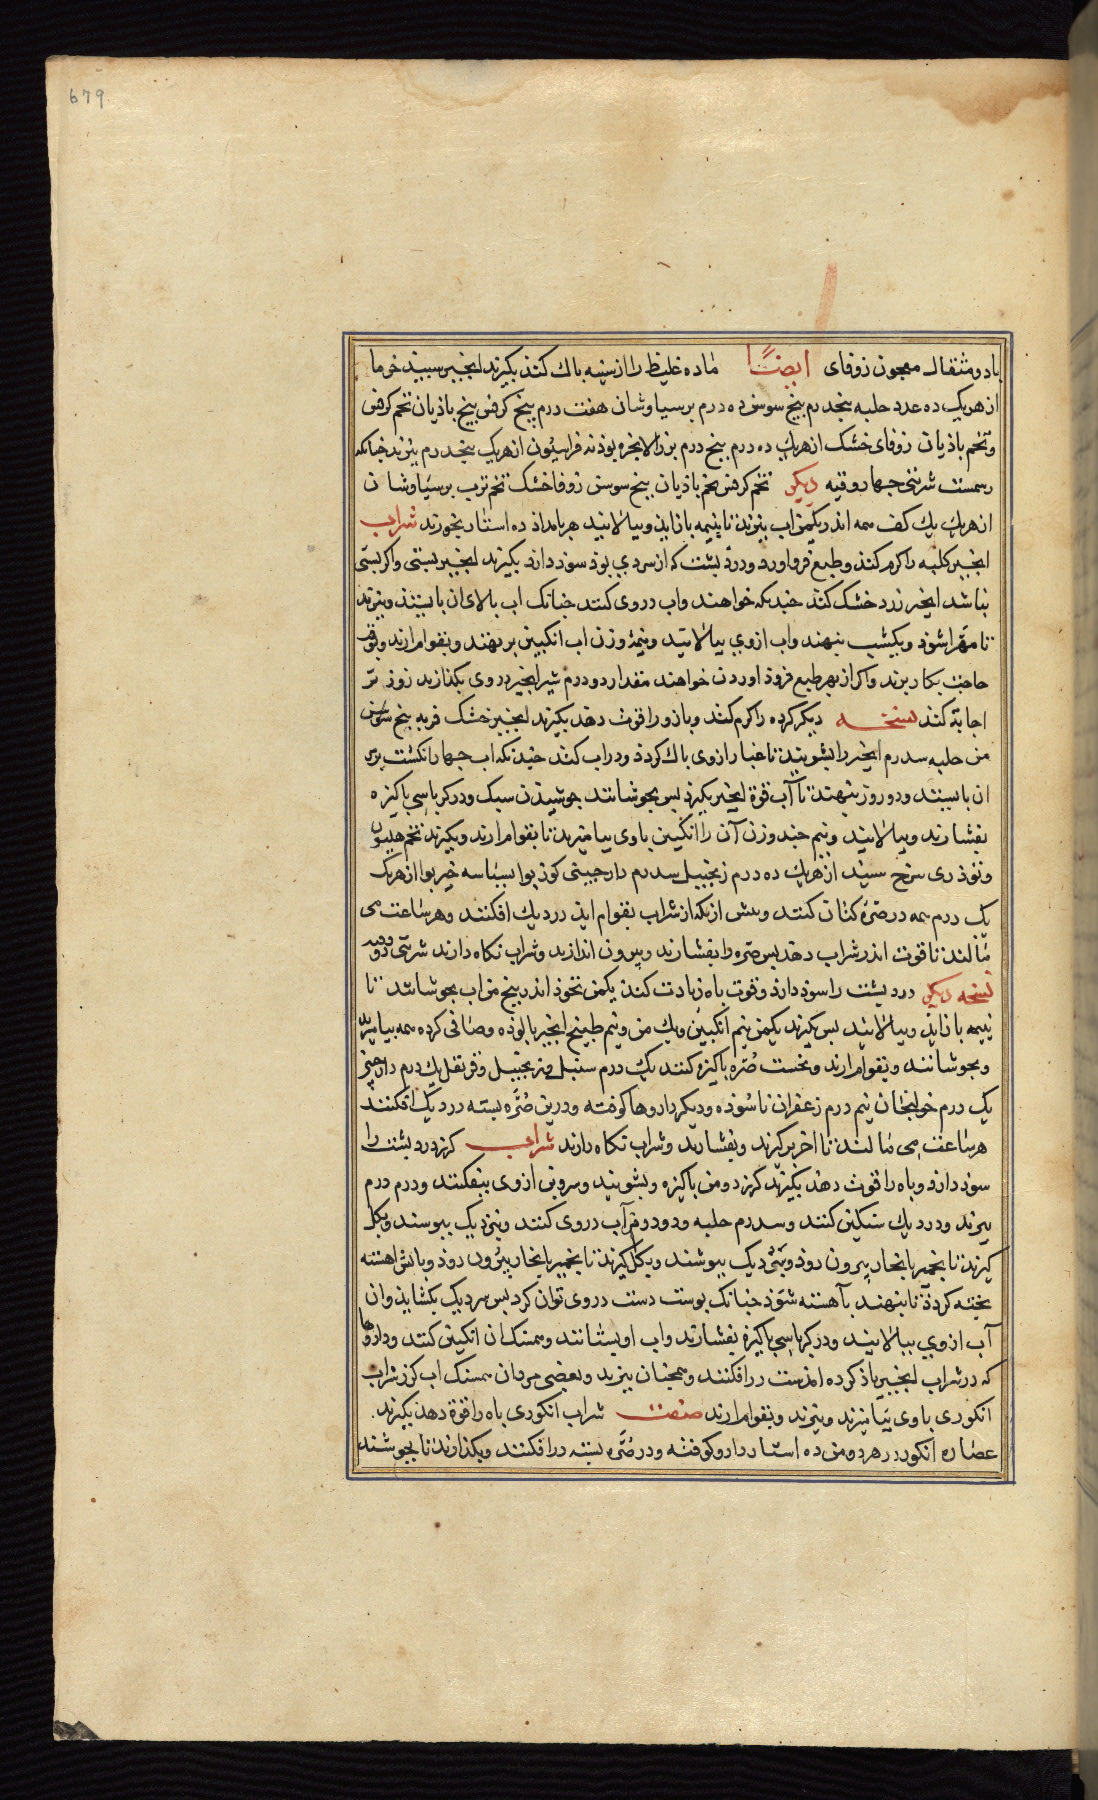 679
با دو مثقال معجون زوفای ایضًا ماده غلیظ را از سینه باك کنذ بکیرند انجیر سبید خرما
از هر یک ده عدد حلبه بنجدرم بیخ سوسن ده درم برسیاوشان هفت درم بیخ کرفس بیخ باذیان تخم کرفس
وتخم باذیان زوفای خشک از هریک ده درم بنج درم بزر الانجره بوذنه فراسیون از هریک بنجدرم ببزند جنانکه
رسمست شربتی جهار وقیه دیکر تخم کرفس تخم باذیان بیخ سوسن زوفا خشک تخم ترب برسیاوشان
از هریك یك کف همه اندر یکمن اب ببزند تا بنیمه باز ایذ وببالایند هر بامداذ ده استار بخورند شراب
انجیر کلیه را کرم کنذ وطبع فرو اورد ودرد بشت که از سردی بوذ سوذ دارد بکیرند انجیر بستی واکر بستی
نباشد انجیر زرد خشک کند جندبکه خواهند واب در وی کنند جنانک اب بالای ان بایستذ وببزند
تا مهرا شوذ ویکشب بنهند واب از وی ببالایند ونیمهٔ وزن اب انکبین بر نهند وبقوام ارند وبوقت
حاجت بکار برند واکر از بهر طبع فروذ اوردن خواهند مقدار دو درم شیر انجیر در وی بکذازند زوذتر
اجابة کند نسخه دیکر کرده را کرم کند وباذو را قوت دهد بکیرند انجیر خشک فربه بنج
من حلبه سدرم انجیر را بشویند تا غبار از وی باك کردذ ودر اب کنند جندنکه اب جهار انکشت بر سر
ان بایستد ودو روز بنهند تا آب قوة انجیر بکیرذ بس بجوشانند جوشیذن سبک ودر کرباسی باکیزه
بفشارند وببالایند ونیم جند وزن آن را انکبین با وی بیامیزند تا بقوام ارند وبکیرند تخم هلیون
وتوذری سرخ سبید از هریك ده درم زنجبیل سدرم دارجینی کوز بوا بسباسه خیربوا از هریک
یک درم همه در صرّۀ کتان کنند وبیش از انکه شراب بقوام ایذ در دیك افکنند وهر ساعت می
مالند تا قوت اندر شراب دهد بس صره را بفشارند وبیرون اندازند وشراب نکاه دارند شربتی دو وقیه
نسخه دیکر درد بشت را سوذ دارذ وقوت باه زیادت کند یکمن نخوذ اندر بنج من اب بجوشانند تا
بنیمه باز ایذ وببالایند بس بکیرند یکمن نیم انکبین ویك من ونیم طبیخ انجیر بالوذه وصافی کرده همه بیامیزند
وبجوشانند وبقوام ارند ونخست صُره باکیزه کنند یک درم سنبل وزنجبیل وقرنفل یك درم دارجینی
یک درم خولنجان نیم درم زعفران ناسوذه ودیکر داروها کوفته ودرین صُرّه بسته در دیک افکنند
هر ساعت می مالند تا اخر بر کیرند وبفشارند وشراب نکاه دارند شراب کزر درد بشت را
سوذ دارذ وباه را قوت دهد بکیرند کزر دو من باکیزه وبشویند وبیرون از وی بیفکنند ودرم درم
ببرند ودر دیك سنکین کنند وسدرم حلبه ودو دو من آب در وی کنند وبنزدیک ببوسند وبکل
کیرند تا بخمیر یا بخار بیرون روذ وبنی دیک ببوشند وبکل کیرند تا بخمیر یا بخار بیرون روذ وباتش اهسته
بخته کردذ تا بنهند با آهسته شوذ جنانک بوست دست در وی توان کرد بس سر دیک بکشایند وان
آب از وی ببالایند ودر کرباسی باکیزه بفشارند واب او بستانند وهمسنک ان انکبین کنند وداروها
که در شراب انجیر یاذ کرده امدست درافکنند وهمجنان ببزند وبعضی مردمان همسنک اب کزر شراب
انکوری با وی بیامیزند وببزند وبقوام ارند صفت شراب انکوری باه را قوة دهد بکیرند
عصاره انکور در هر دو من ده استار دارو کوفته ودر صُرّه بسته درافکنند وبکذارند تا بجوشد